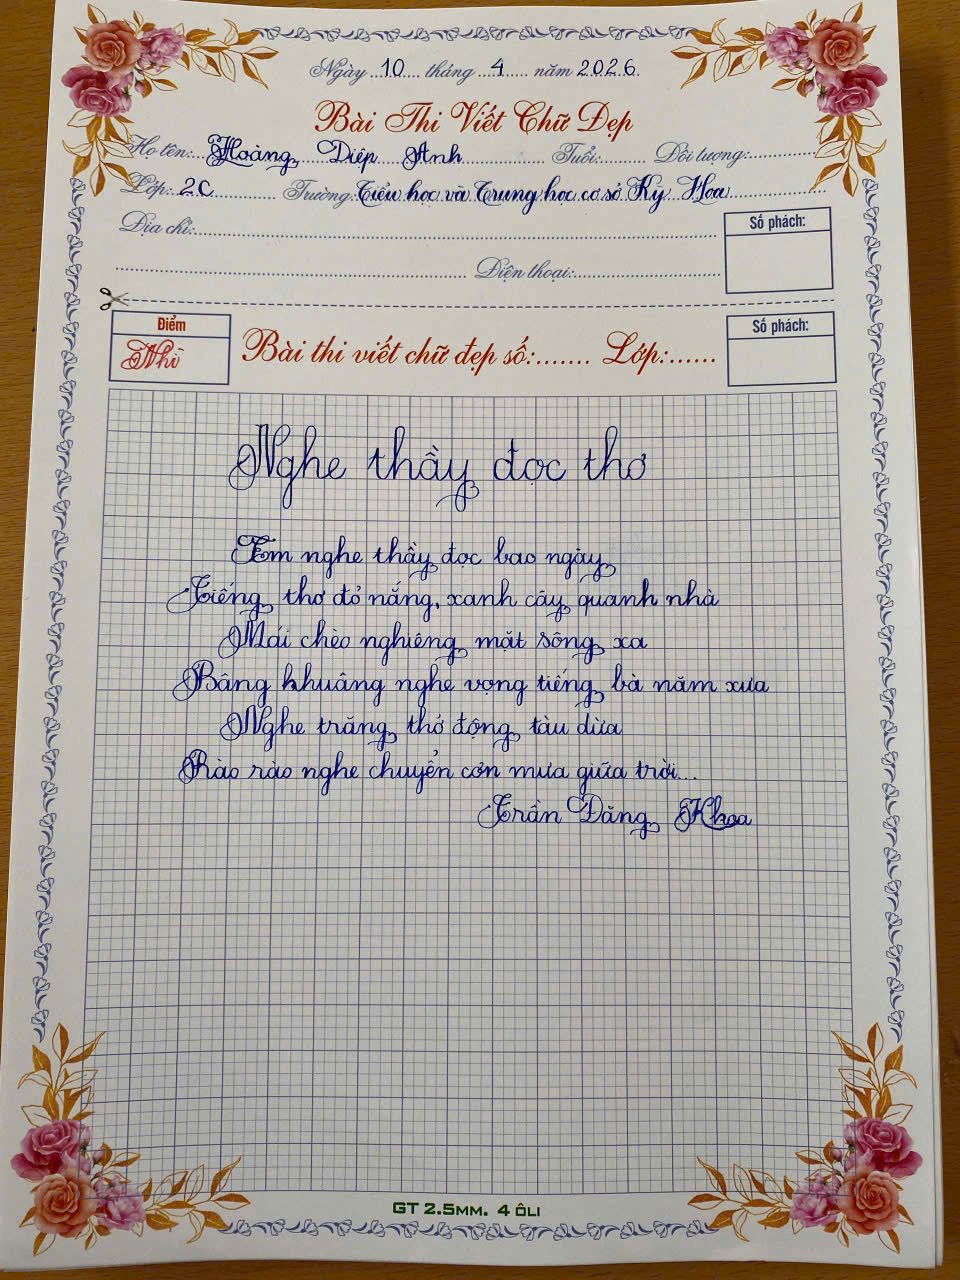 Ngày 10 tháng 4 năm 2026.
Bài Thi Viết Chữ Đẹp
Họ tên: Hoàng Diệp Anh Tuổi: Đối tượng:
Lớp: 2C Trường: Tiểu học và Trung học cơ sở Kỳ Hoa
Địa chỉ:
Số phách:
Điện thoại:
Điểm
Nhì
Bài thi viết chữ đẹp số:....... Lớp:......
Số phách:
Nghe thầy đọc thơ
Em nghe thầy đọc bao ngày
Tiếng thơ đỏ nắng, xanh cây quanh nhà
Mái chèo nghiêng mặt sông xa
Bâng khuâng nghe vọng tiếng bà năm xưa
Nghe trăng thở động tàu dừa
Rào rào nghe chuyển cơn mưa giữa trời...
Trần Đăng Khoa
GT 2.5MM. 4 ÔLI